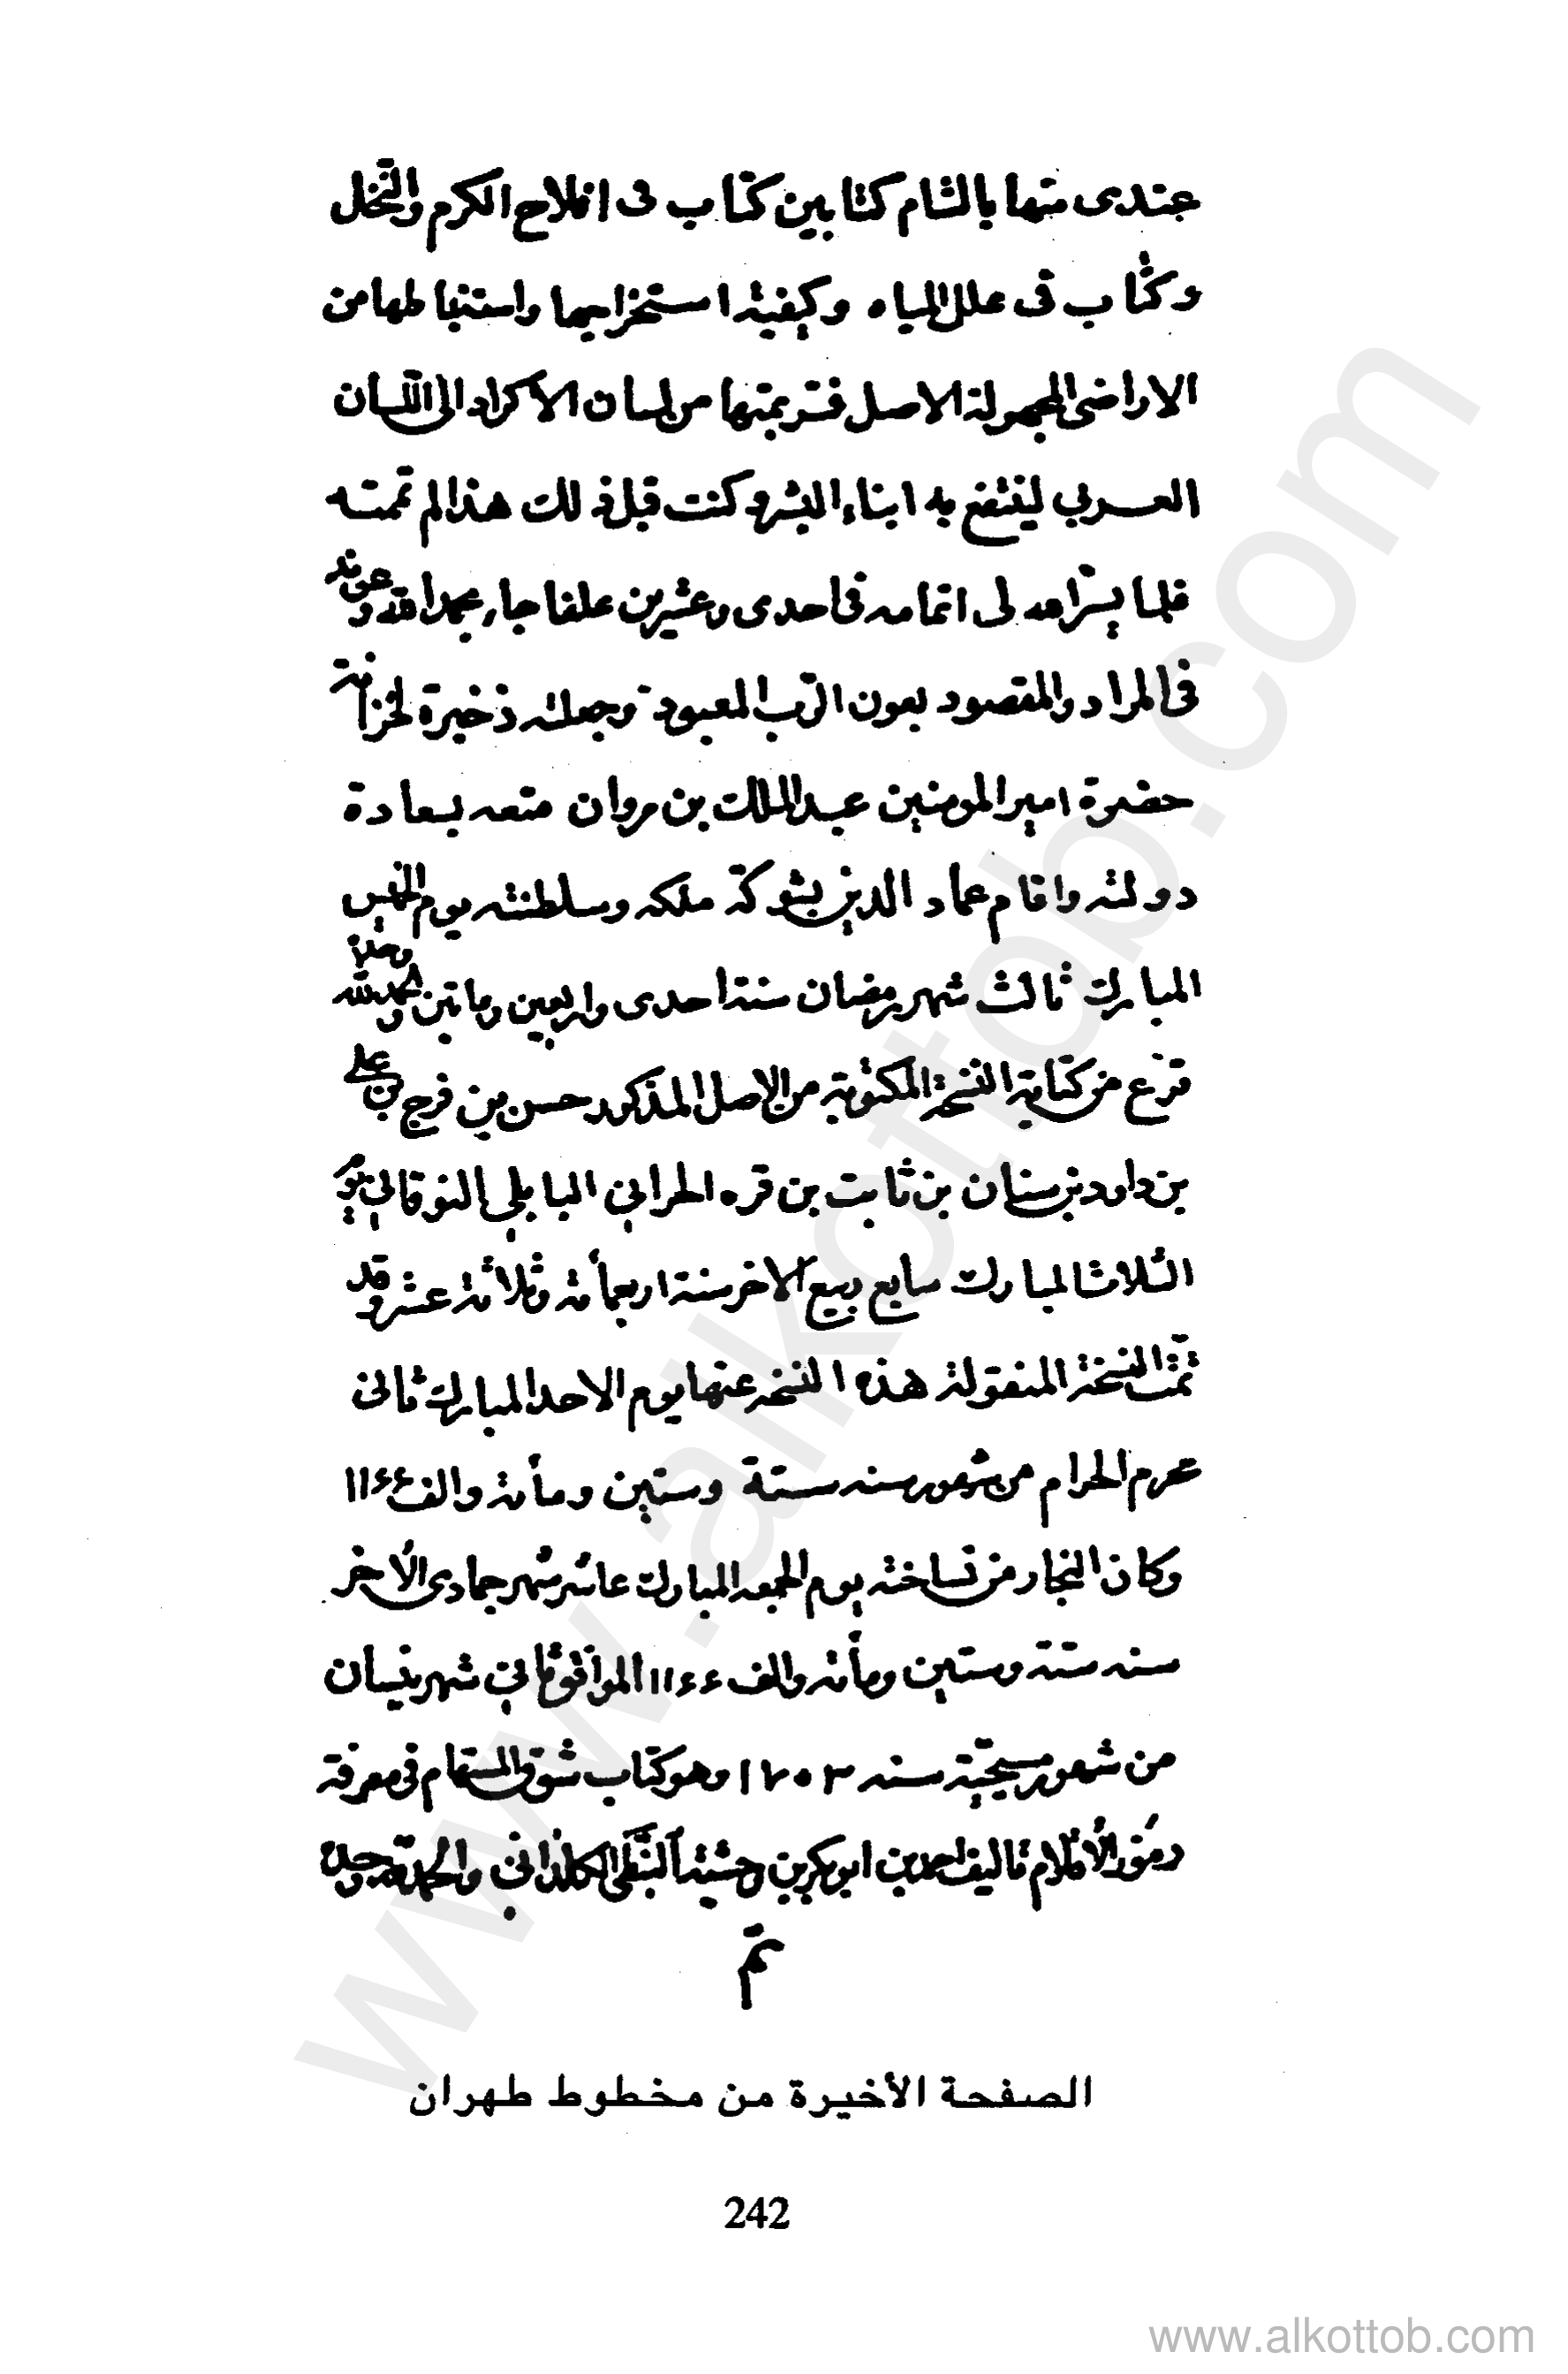 عندى منها بالشام كتابين كتاب فى افلاح الكرم والنخل
وكتاب فى علل المياه وكيفية استخراجها واستنباطها من
الاراضى المجهولة الاصل فترجمتها من لسان الاكراد الى اللسان
العربي لينتفع به ابناء البشر وكنت قبل ذلك هذا لم تممته
فلما يسّر الله لى اتمامه فى احدى وعشرين علفا جاء بحمد الله وعونه
فى المراد والمقصود بعون الرّب المعبود وجعلته ذخيرة لخزانة
حضرة امير المومنين عبد الملك بن مروان متعه بسعادة
دولته واقام عماد الدين بشوكة ملكه وسلطنته يوم الخميس
المبارك ثالث شهر رمضان سنة احدى واربعين وماتين والحمد لله وحده
فرع من كتابة النسخة المكتوبة من الاصل المذكور حسن بن فرج بن على
بن داود بن سنان بن ثابت بن قره الحراني البابلي النوقاني يوم
الثلاثا المبارك سابع ربيع الاخر سنة اربعمأئة وثلاثة عشر وقد
تمت النسخة المنقولة هذه النسخه عنها يوم الاحد المبارك ثانى
محرم الحرام من شهور سنه ستة وستين ومأئة والف ١١٦٦
وكان النجاز من نساخته يوم الجمعه المبارك عاشر شهر جمادى الأخر
سنه ستة وستين ومأئة والف ١١٦٦ الموافق ثاني شهر نيسان
من شهور مسيحيّة سنه ١٧٥٣ وهو كتاب شوق المستهام فى معرفة
رموز الأقلام تاليف احمد بن ابو بكر بن وحشية النبطى الكلدانى والحمد لله وحده
تمّ
الصفحة الأخيرة من مخطوط طهران
242
www.alkottob.com
www.alkottob.com